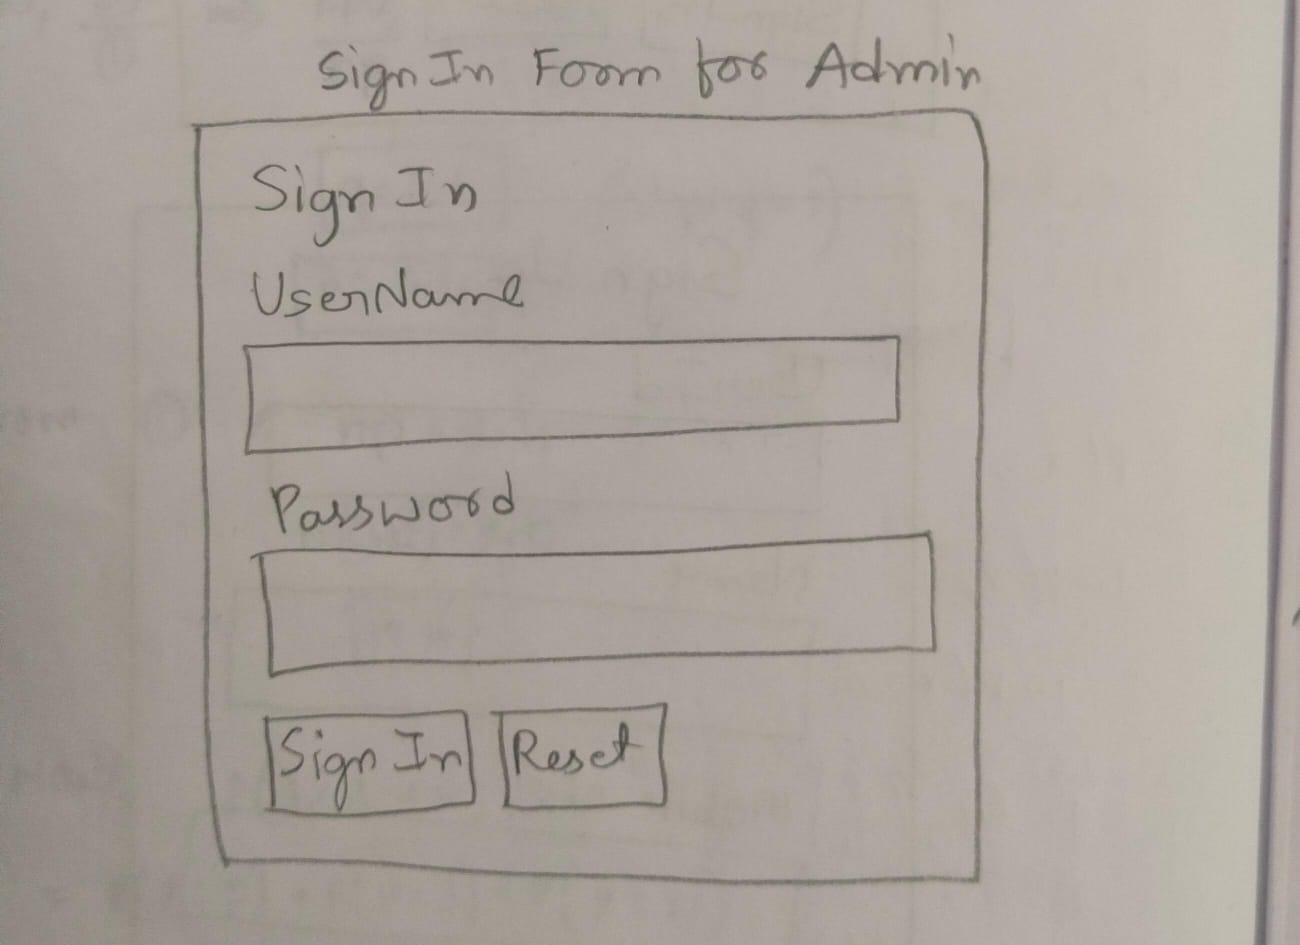 Sign In Form for Admin
Sign In
UserName
Password
Sign In Reset